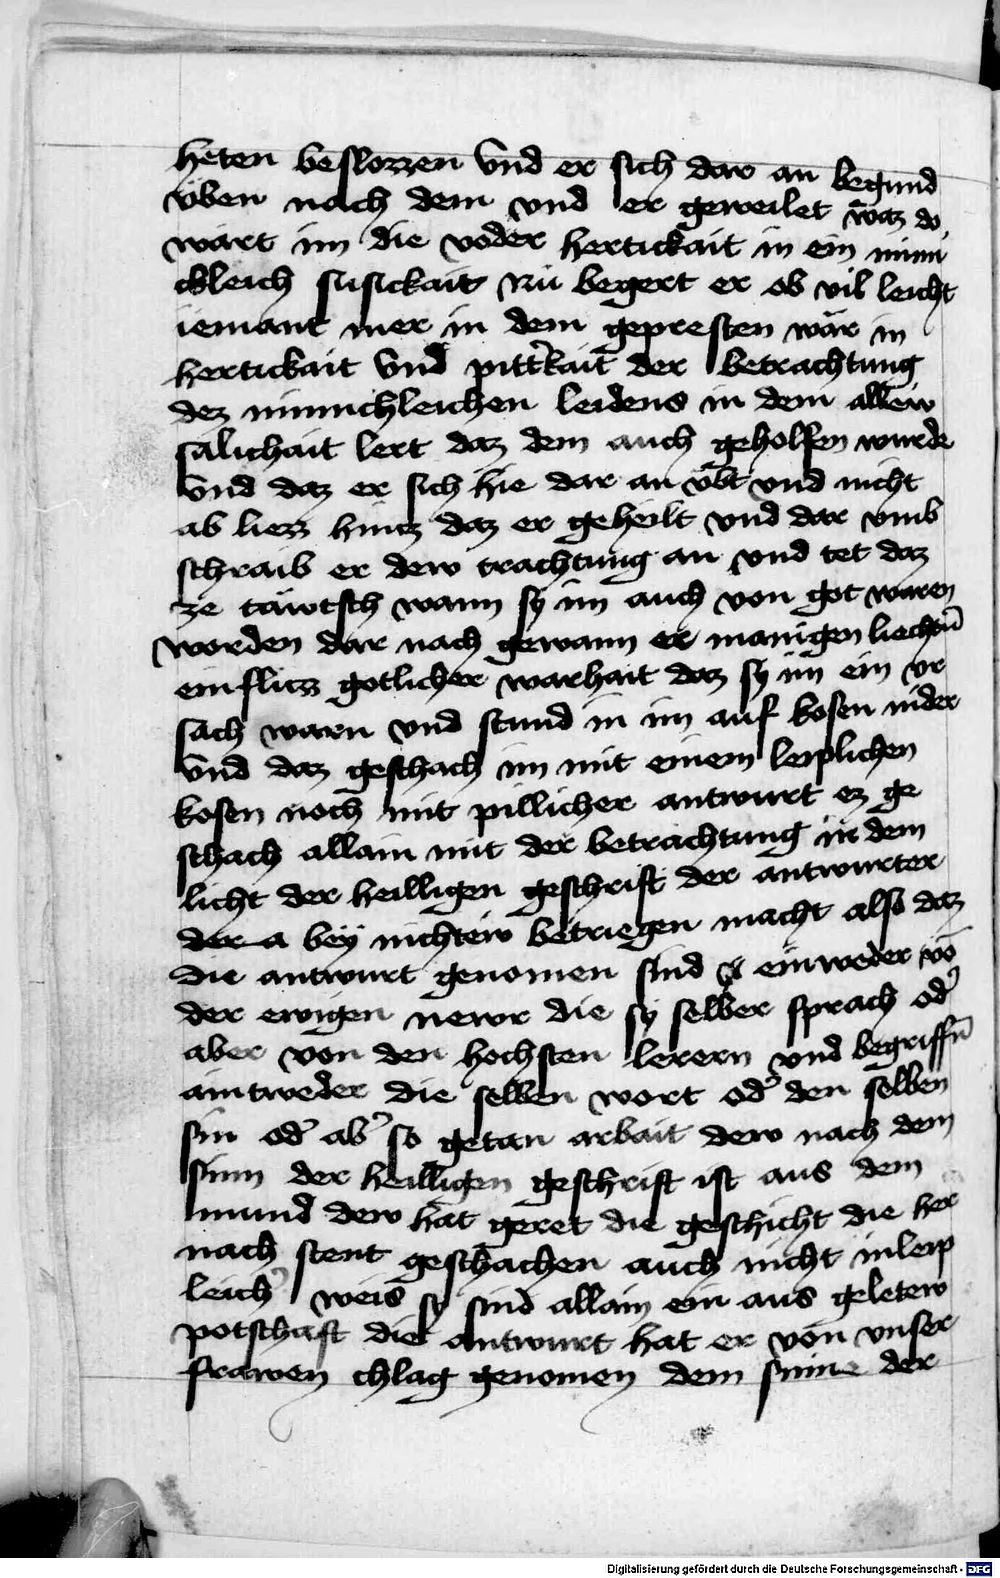 heten beslozzen Vnd er sich dar an begund
vͤben nach dem vnd er geweilet waz do
wart im die voder hertickait in ein minni
chleich susickait Nu begert er ob vil leicht
iemant mer in dem gepresten wär in
hertickait Vnd pitterkait der betrachtung
dez minnichleichen leidens in dem allew
salichait lert daz dem auch geholfen wurde
Vnd daz er sich hie dar an vͤbt vnd nicht
ab liezz hintz daz er geheilt vnd dar vmb
schraib er dew trachtung an vnd tet daz
ze täwtsch wann sy im auch von got waren
worden dar nach gewann er manigen liechtn̄
einflizz gotlicher warhait daz sy im ein vr
sach warn vnd stund in im auf kosen nider
Vnd daz geschach im mit einem leiplichen
kosen noch mit pillicher antwurt ez ge
schach allain mit der betrachtung in dem
licht der heilligen geschrift der antwurter
der a bey nichtew betriegen macht also daz
die antwurt genomen sind einweder vō
der ewigen newr die sy selber sprach od'
aber von den hochsten lerern vnd begriffn̄
aintweder die selben wort od' den selben
sin od' ab' so getan arbait dew nach dem
sinn der heilligen geschrift ist aus dem
mund dew hat geret die geschicht die her
nach stent geschachen auch nicht inleip
leich' weis sy sind allain ein aus geletew
potschaft die antwurt hat er von vnser
frawen chlag genomen dem sinne der
Digitalisierung gefördert durch die Deutsche Forschungsgemeinschaft - DFG